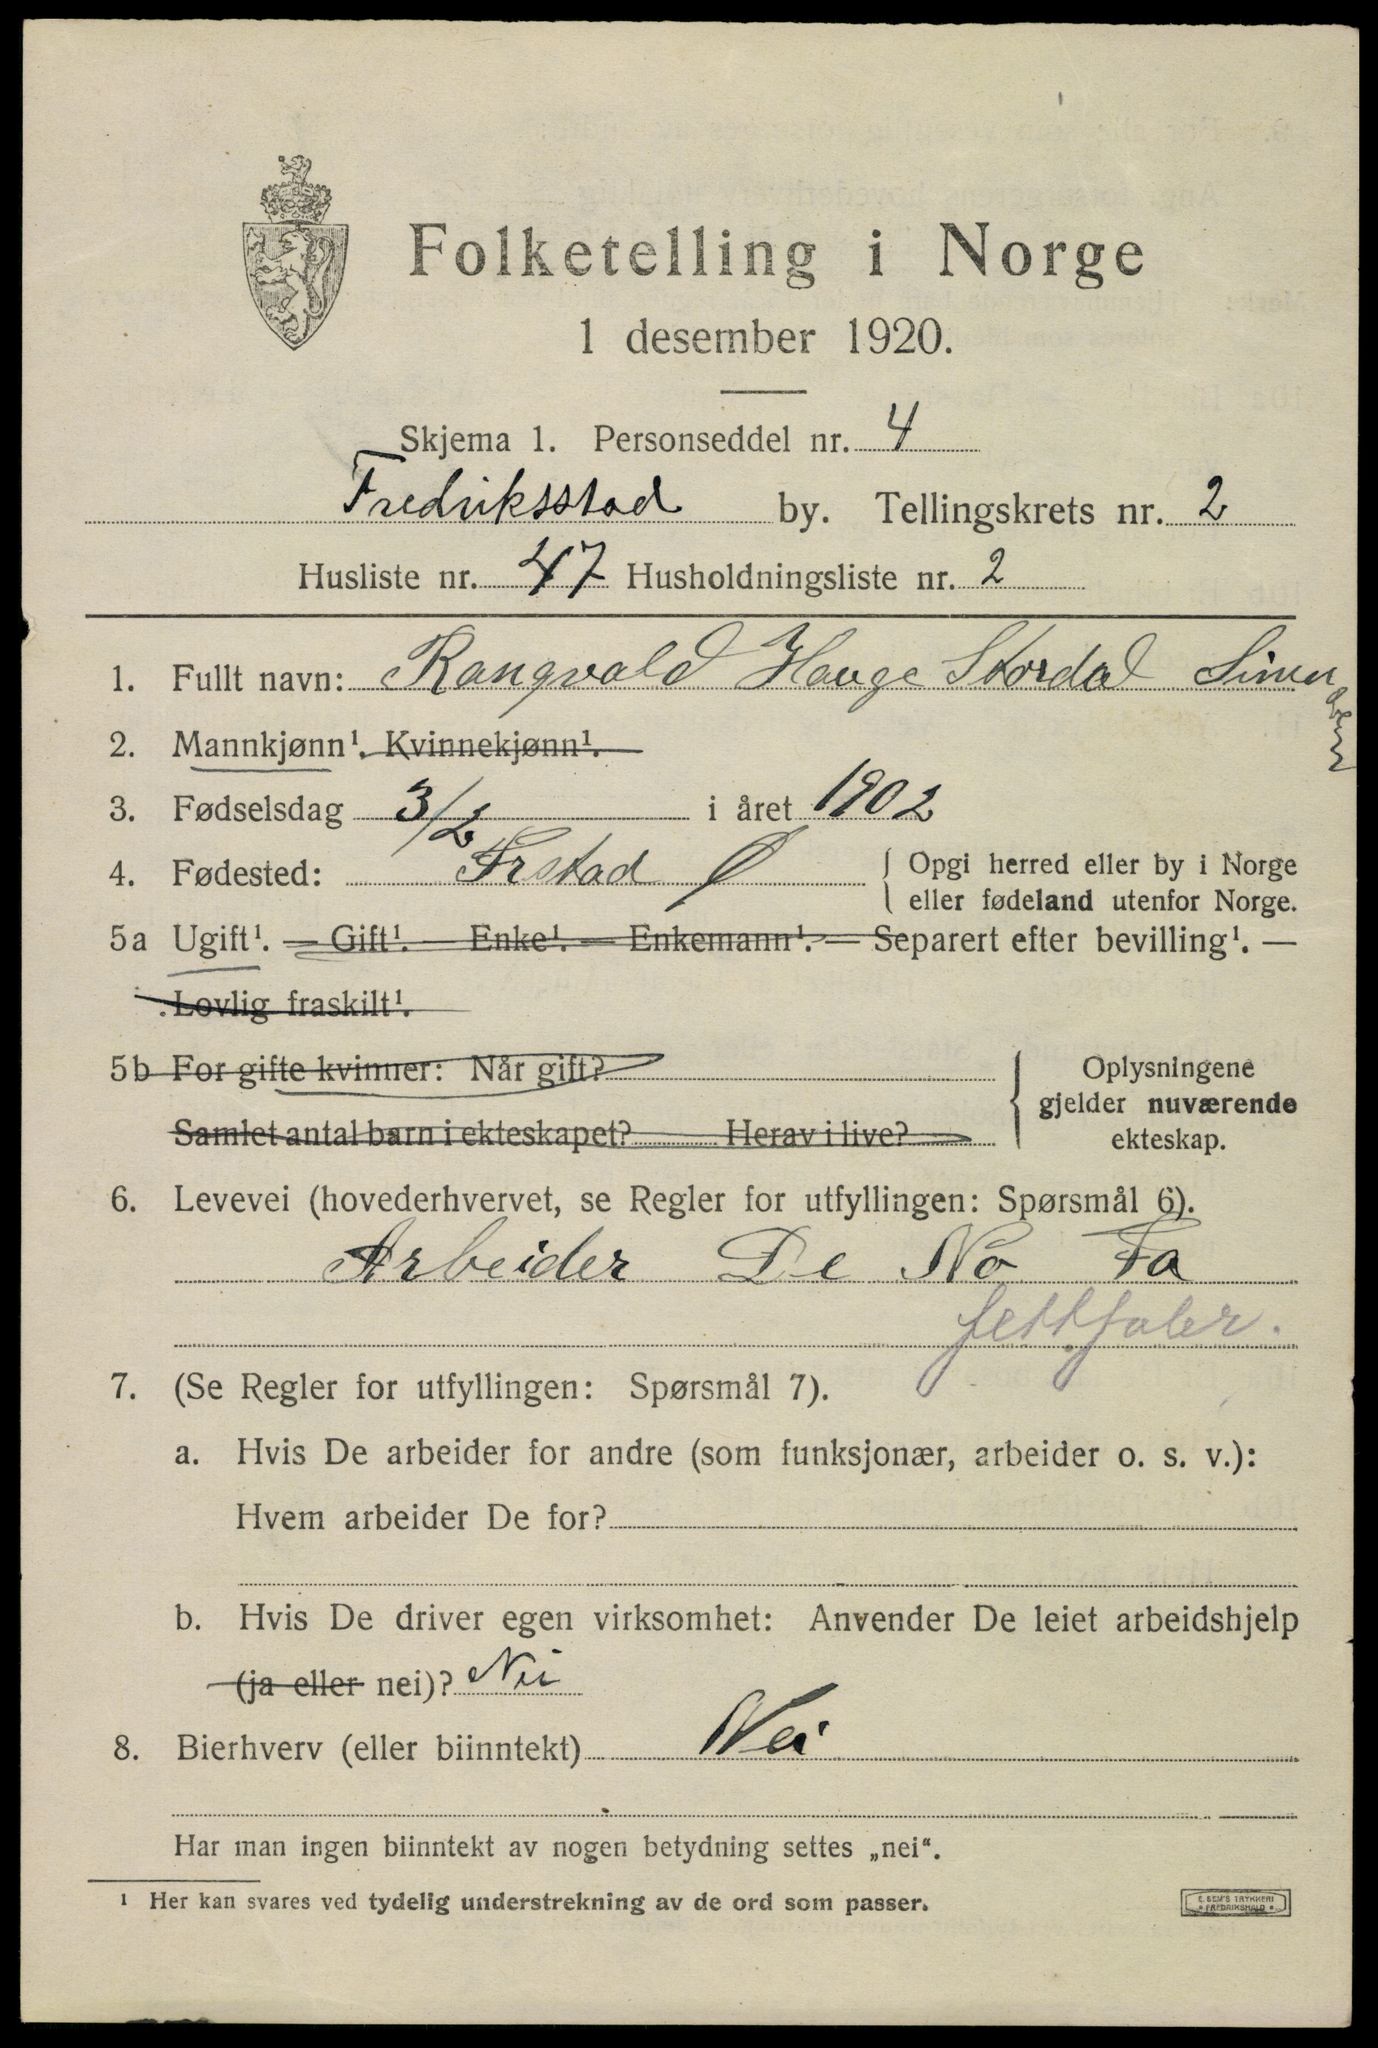 Folketelling i Norge
1 desember 1920.
Skjema 1. Personseddel nr. 4
Fredriksstad by. Tellingskrets nr. 2
Husliste nr. 47 Husholdningsliste nr. 2
1. Fullt navn: Rangvald Hauge Stordal Simensen
2. Mannkjønn¹. Kvinnekjønn¹.
3. Fødselsdag 3/2 i året 1902
4. Fødested: Frstad Ø { Opgi herred eller by i Norge
eller fødeland utenfor Norge.
5a Ugift¹. — Gift¹. — Enke¹. — Enkemann¹. — Separert efter bevilling¹. —
Lovlig fraskilt¹.
5b For gifte kvinner: Når gift? { Oplysningene
gjelder nuværende
Samlet antal barn i ekteskapet? Herav i live?
ekteskap.
6. Levevei (hovederhvervet, se Regler for utfyllingen: Spørsmål 6).
Arbeider De No Fa
fettfabr.
7. (Se Regler for utfyllingen: Spørsmål 7).
a. Hvis De arbeider for andre (som funksjonær, arbeider o. s. v.):
Hvem arbeider De for?
b. Hvis De driver egen virksomhet: Anvender De leiet arbeidshjelp
(ja eller nei)? Nei
8. Bierhverv (eller biinntekt) Nei
Har man ingen biinntekt av nogen betydning settes „nei“.
¹ Her kan svares ved tydelig understrekning av de ord som passer.
E. SEM'S TRYKKERI
FREDRIKSHALD